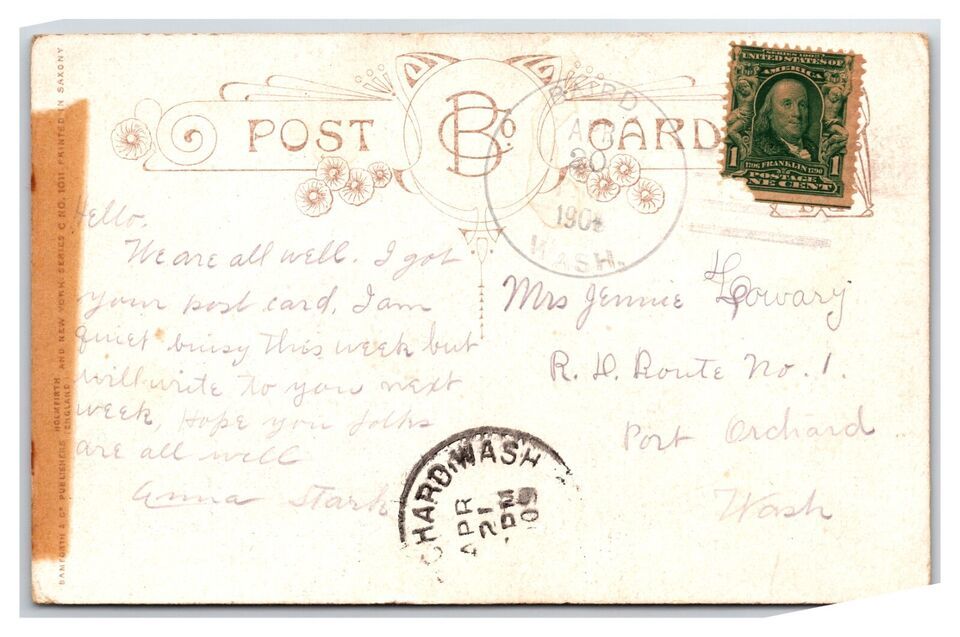 POST CARD
B Co.
APR
20
190
WASH.
SERIES 1902
UNITED STATES OF
AMERICA
1706 FRANKLIN 1790
POSTAGE
1 NE CENT 1
Hello.
We are all well. I got
your post card. I am
quiet buisy this week but
will write to you next
week, Hope you folks
are all well
Anna Stark
Mrs Jennie Lowary
R. D. Route No. 1.
Port Orchard
Wash
CHARD WASH
APR
21
PM
09
BAMFORTH & CO PUBLISHERS HOLMFIRTH (ENGLAND) AND NEW YORK. SERIES C NO. 1011. PRINTED IN SAXONY